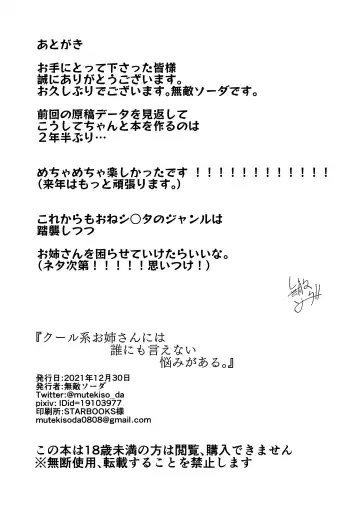 あとがき
お手にとって下さった皆様
誠にありがとうございます。
お久しぶりでございます。無敵ソーダです。
前回の原稿データを見返して
こうしてちゃんと本を作るのは
２年半ぶり…
めちゃめちゃ楽しかったです！！！！！！！！！！！！
（来年はもっと頑張ります。）
これからもおねシ○タのジャンルは
踏襲しつつ
お姉さんを困らせていけたらいいな。
（ネタ次第！！！！！思いつけ！）
『クール系お姉さんには
誰にも言えない
悩みがある。』
発行日:2021年12月30日
発行者:無敵ソーダ
Twitter:@mutekiso_da
pixiv: IDid=19103977
印刷所:STARBOOKS様
mutekisoda0808@gmail.com
この本は18歳未満の方は閲覧、購入できません
※無断使用、転載することを禁止します